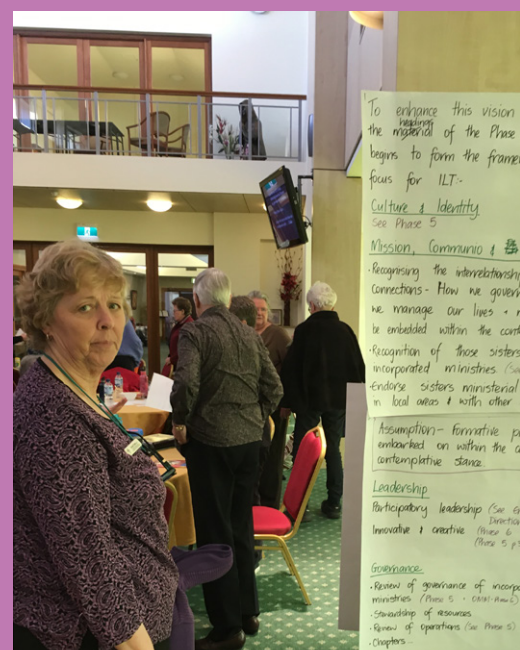 To enhance this vision
headings
the material of the Phase
begins to form the
focus for ILT:-
Culture & Identity
See Phase 5
Mission, Communio &
• Recognising the
connections - How we
we manage our lives +
be embedded within the
• Recognition of those sisters
incorporated ministries.
• Endorse sisters ministerial
in local areas & with other
Assumption - formative
embarked on within the
contemplative stance
Leadership
Participatory leadership (See
Innovative & creative (Phase 6
(Phase 5
Governance
• Review of governance of
ministries (Phase 5
• Stewardship of resources
• Review of operations (See Phase 5)
• Chapters